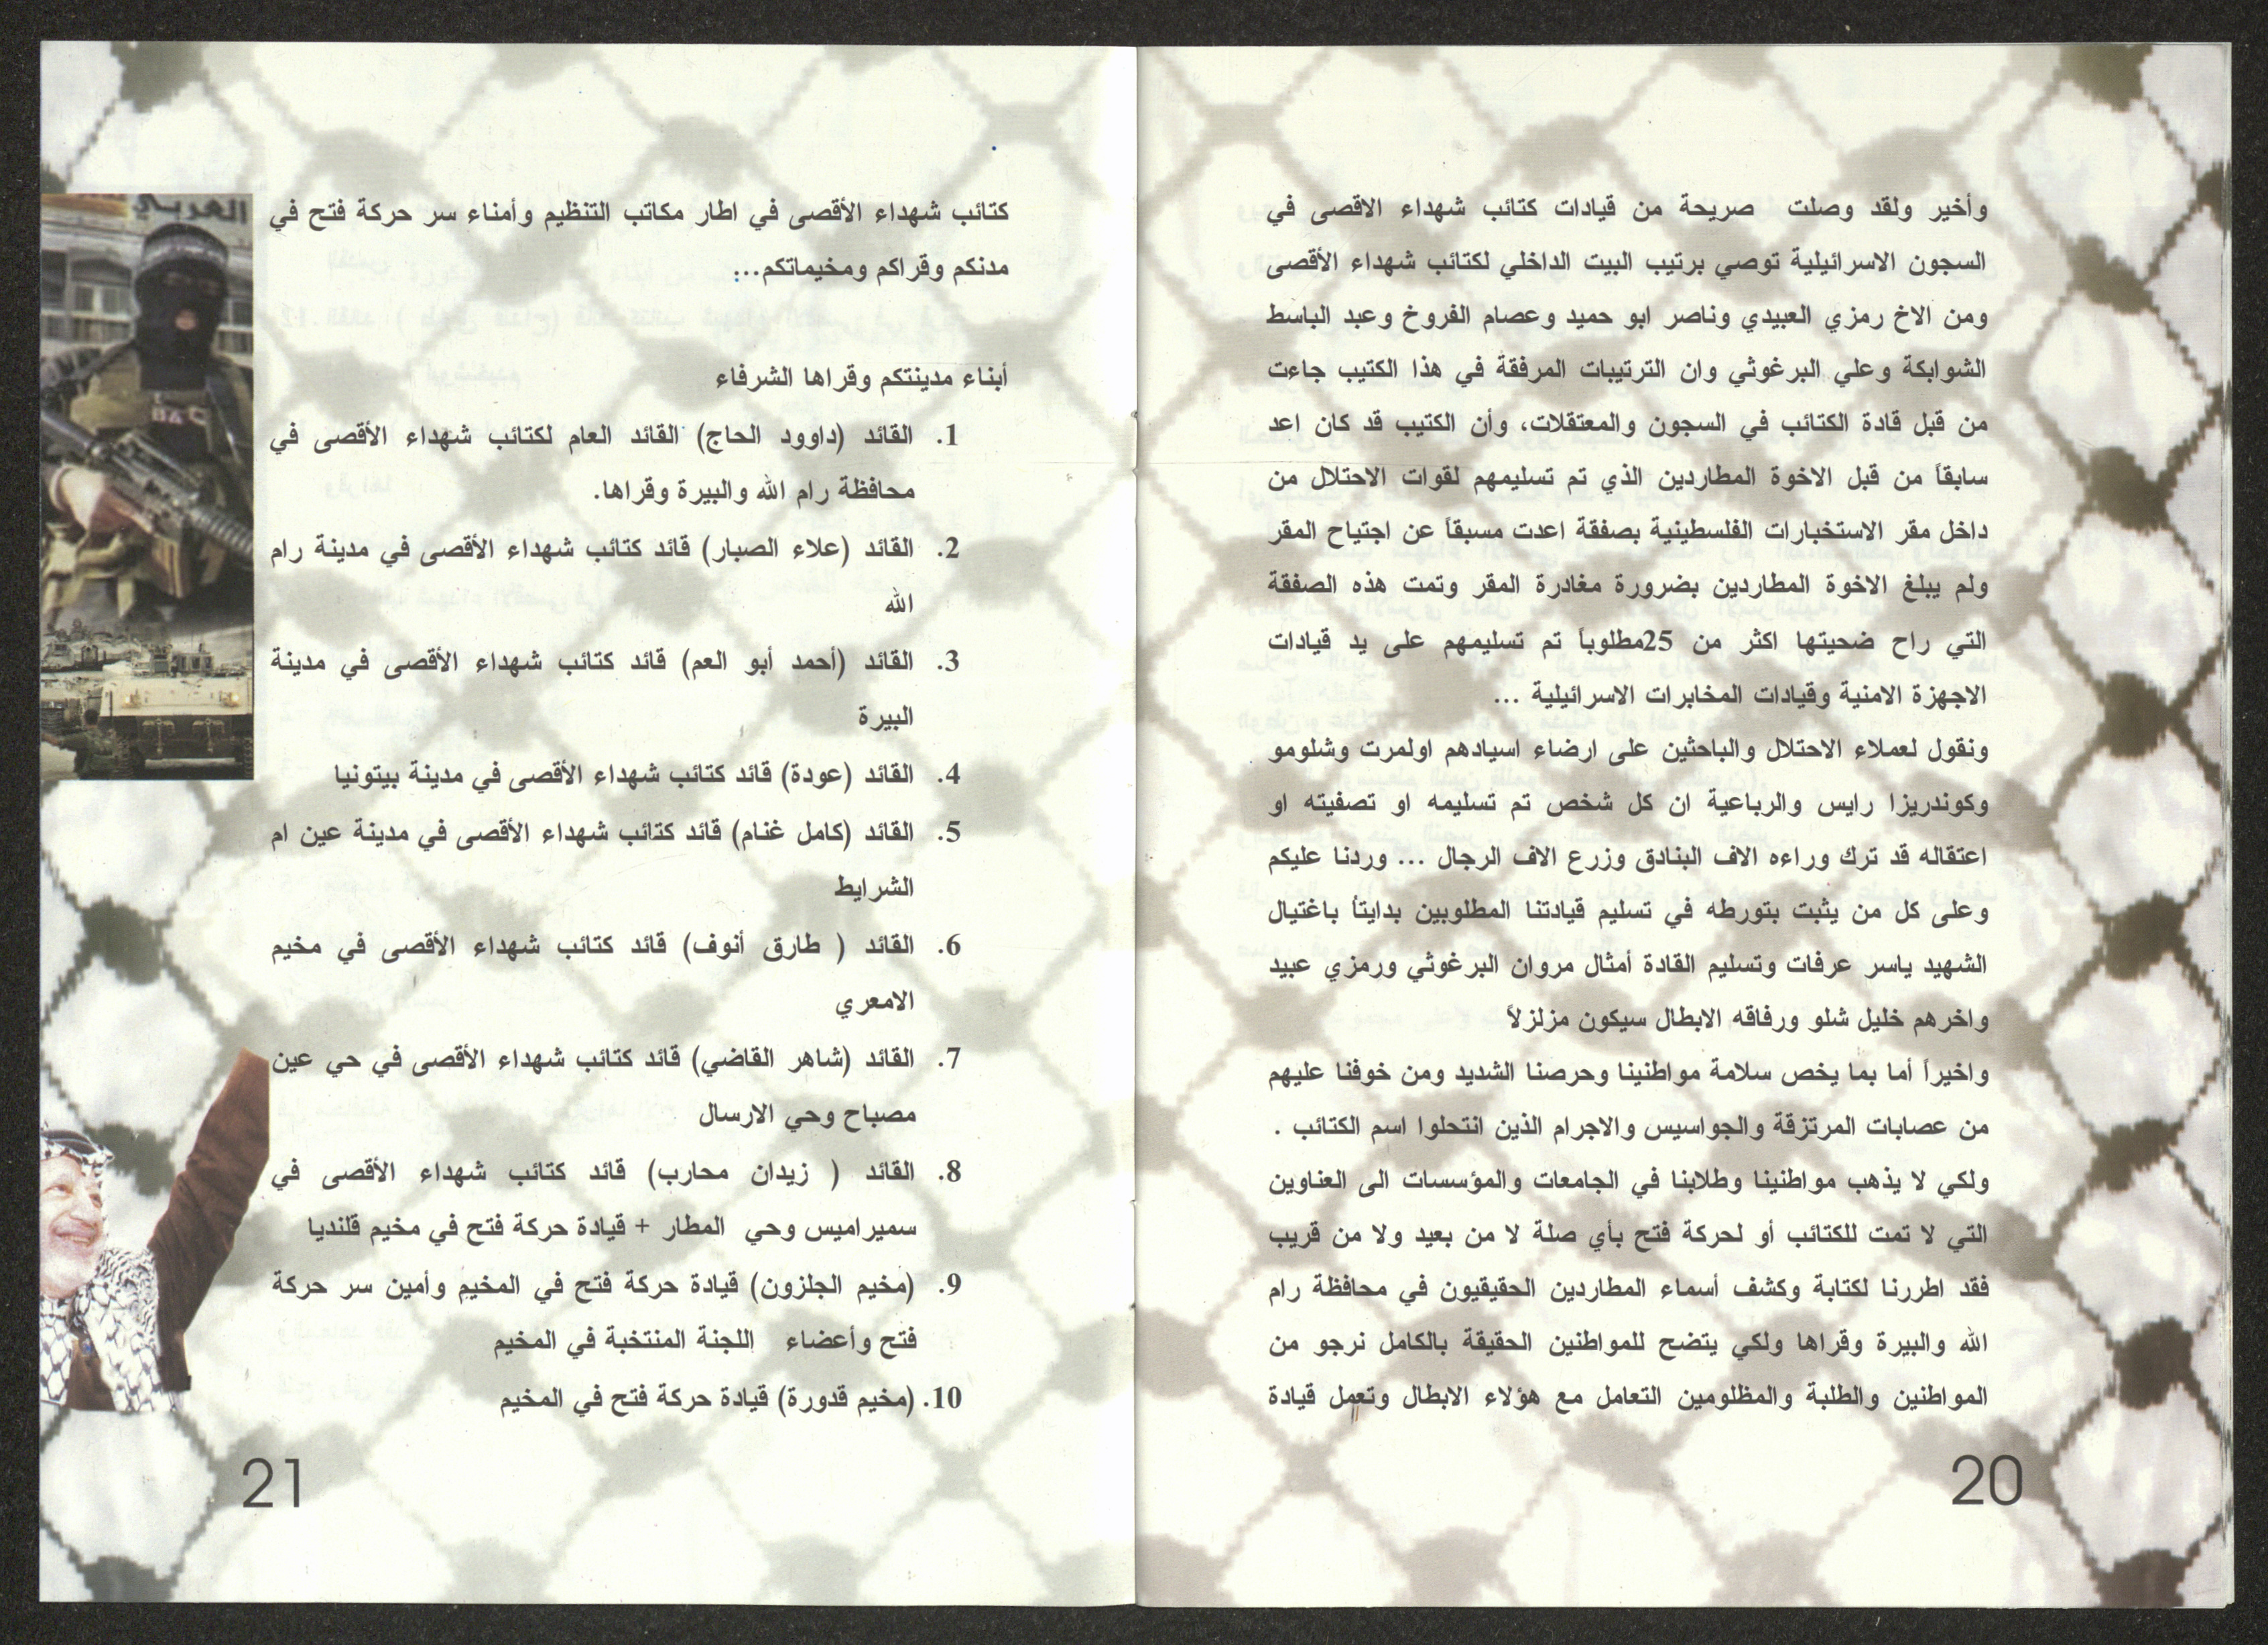 وأخير ولقد وصلت صريحة من قيادات كتائب شهداء الاقصى في
السجون الاسرائيلية توصي برتيب البيت الداخلي لكتائب شهداء الأقصى
ومن الاخ رمزي العبيدي وناصر ابو حميد وعصام الفروخ وعبد الباسط
الشوابكة وعلي البرغوثي وان الترتيبات المرفقة في هذا الكتيب جاءت
من قبل قادة الكتائب في السجون والمعتقلات، وأن الكتيب قد كان اعد
سابقاً من قبل الاخوة المطاردين الذي تم تسليمهم لقوات الاحتلال من
داخل مقر الاستخبارات الفلسطينية بصفقة اعدت مسبقاً عن اجتياح المقر
ولم يبلغ الاخوة المطاردين بضرورة مغادرة المقر وتمت هذه الصفقة
التي راح ضحيتها اكثر من 25مطلوباً تم تسليمهم على يد قيادات
الاجهزة الامنية وقيادات المخابرات الاسرائيلية ...
ونقول لعملاء الاحتلال والباحثين على ارضاء اسيادهم اولمرت وشلومو
وكوندريزا رايس والرباعية ان كل شخص تم تسليمه او تصفيته او
اعتقاله قد ترك وراءه الاف البنادق وزرع الاف الرجال ... وردنا عليكم
وعلى كل من يثبت بتورطه في تسليم قيادتنا المطلوبين بدايتاً باغتيال
الشهيد ياسر عرفات وتسليم القادة أمثال مروان البرغوثي ورمزي عبيد
واخرهم خليل شلو ورفاقه الابطال سيكون مزلزلاً
واخيراً أما بما يخص سلامة مواطنينا وحرصنا الشديد ومن خوفنا عليهم
من عصابات المرتزقة والجواسيس والاجرام الذين انتحلوا اسم الكتائب .
ولكي لا يذهب مواطنينا وطلابنا في الجامعات والمؤسسات الى العناوين
التي لا تمت للكتائب أو لحركة فتح بأي صلة لا من بعيد ولا من قريب
فقد اطررنا لكتابة وكشف أسماء المطاردين الحقيقيون في محافظة رام
الله والبيرة وقراها ولكي يتضح للمواطنين الحقيقة بالكامل نرجو من
المواطنين والطلبة والمظلومين التعامل مع هؤلاء الابطال وتعمل قيادة
20
كتائب شهداء الأقصى في اطار مكاتب التنظيم وأمناء سر حركة فتح في
مدنكم وقراكم ومخيماتكم...:
أبناء مدينتكم وقراها الشرفاء
1. القائد (داوود الحاج) القائد العام لكتائب شهداء الأقصى في
محافظة رام الله والبيرة وقراها.
2. القائد (علاء الصبار) قائد كتائب شهداء الأقصى في مدينة رام
الله
3. القائد (أحمد أبو العم) قائد كتائب شهداء الأقصى في مدينة
البيرة
4. القائد (عودة) قائد كتائب شهداء الأقصى في مدينة بيتونيا
5. القائد (كامل غنام) قائد كتائب شهداء الأقصى في مدينة عين ام
الشرايط
6. القائد ( طارق أنوف) قائد كتائب شهداء الأقصى في مخيم
الامعري
7. القائد (شاهر القاضي) قائد كتائب شهداء الأقصى في حي عين
مصباح وحي الارسال
8. القائد ( زيدان محارب) قائد كتائب شهداء الأقصى في
سميراميس وحي المطار + قيادة حركة فتح في مخيم قلنديا
9. (مخيم الجلزون) قيادة حركة فتح في المخيم وأمين سر حركة
فتح وأعضاء اللجنة المنتخبة في المخيم
10. (مخيم قدورة) قيادة حركة فتح في المخيم
21